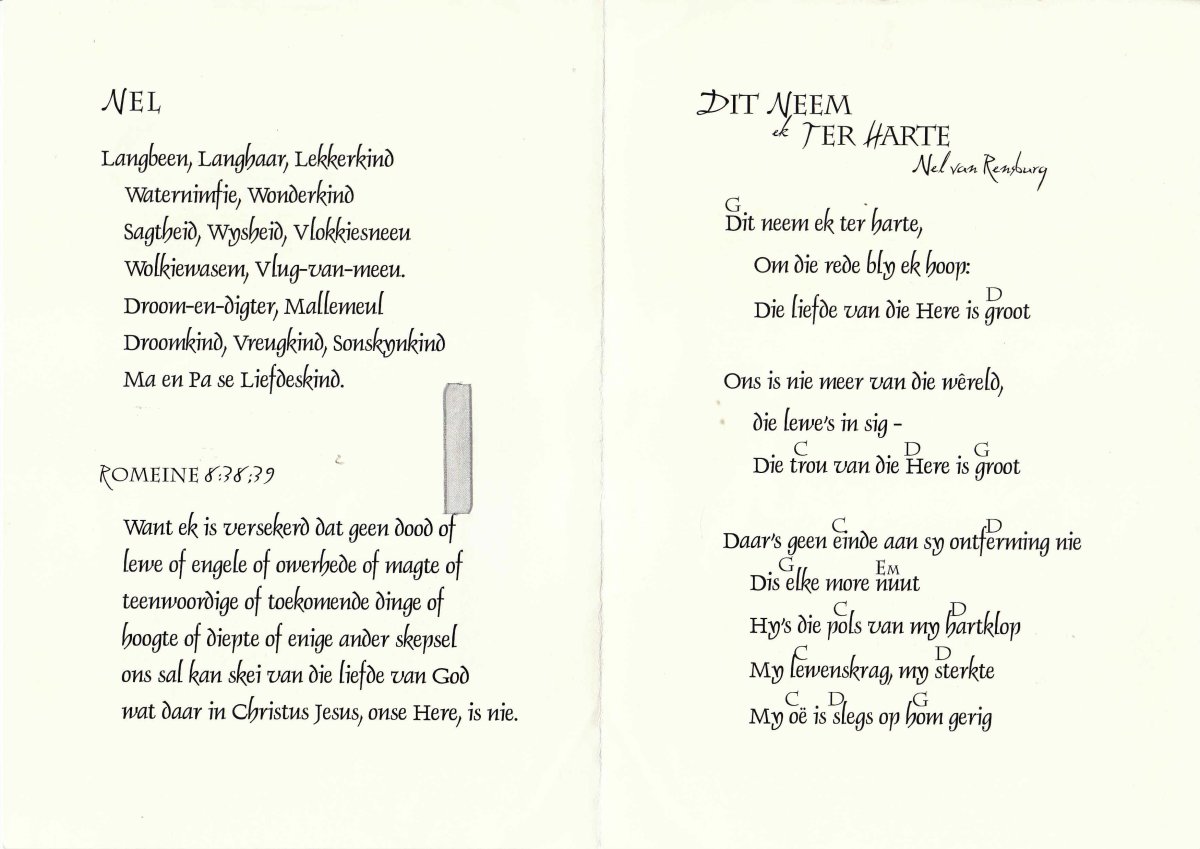 NEL
Langbeen, Langhaar, Lekkerkind
Waternimfie, Wonderkind
Sagtheid, Wysheid, Vlokkiesneeu
Wolkiewasem, Vlug-van-meeu.
Droom-en-digter, Mallemeul
Droomkind, Vreugkind, Sonskynkind
Ma en Pa se Liefdeskind.
ROMEINE 8:38;39
Want ek is versekerd dat geen dood of
lewe of engele of owerhede of magte of
teenwoordige of toekomende dinge of
hoogte of diepte of enige ander skepsel
ons sal kan skei van die liefde van God
wat daar in Christus Jesus, onse Here, is nie.
DIT NEEM
ek TER HARTE
Nel van Rensburg
G
Dit neem ek ter harte,
Om die rede bly ek hoop:
D
Die liefde van die Here is groot
Ons is nie meer van die wêreld,
die lewe's in sig –
C D G
Die trou van die Here is groot
C D
Daar's geen einde aan sy ontferming nie
G EM
Dis elke more nuut
C D
Hy's die pols van my hartklop
C D
My lewenskrag, my sterkte
C D G
My oë is slegs op hom gerig